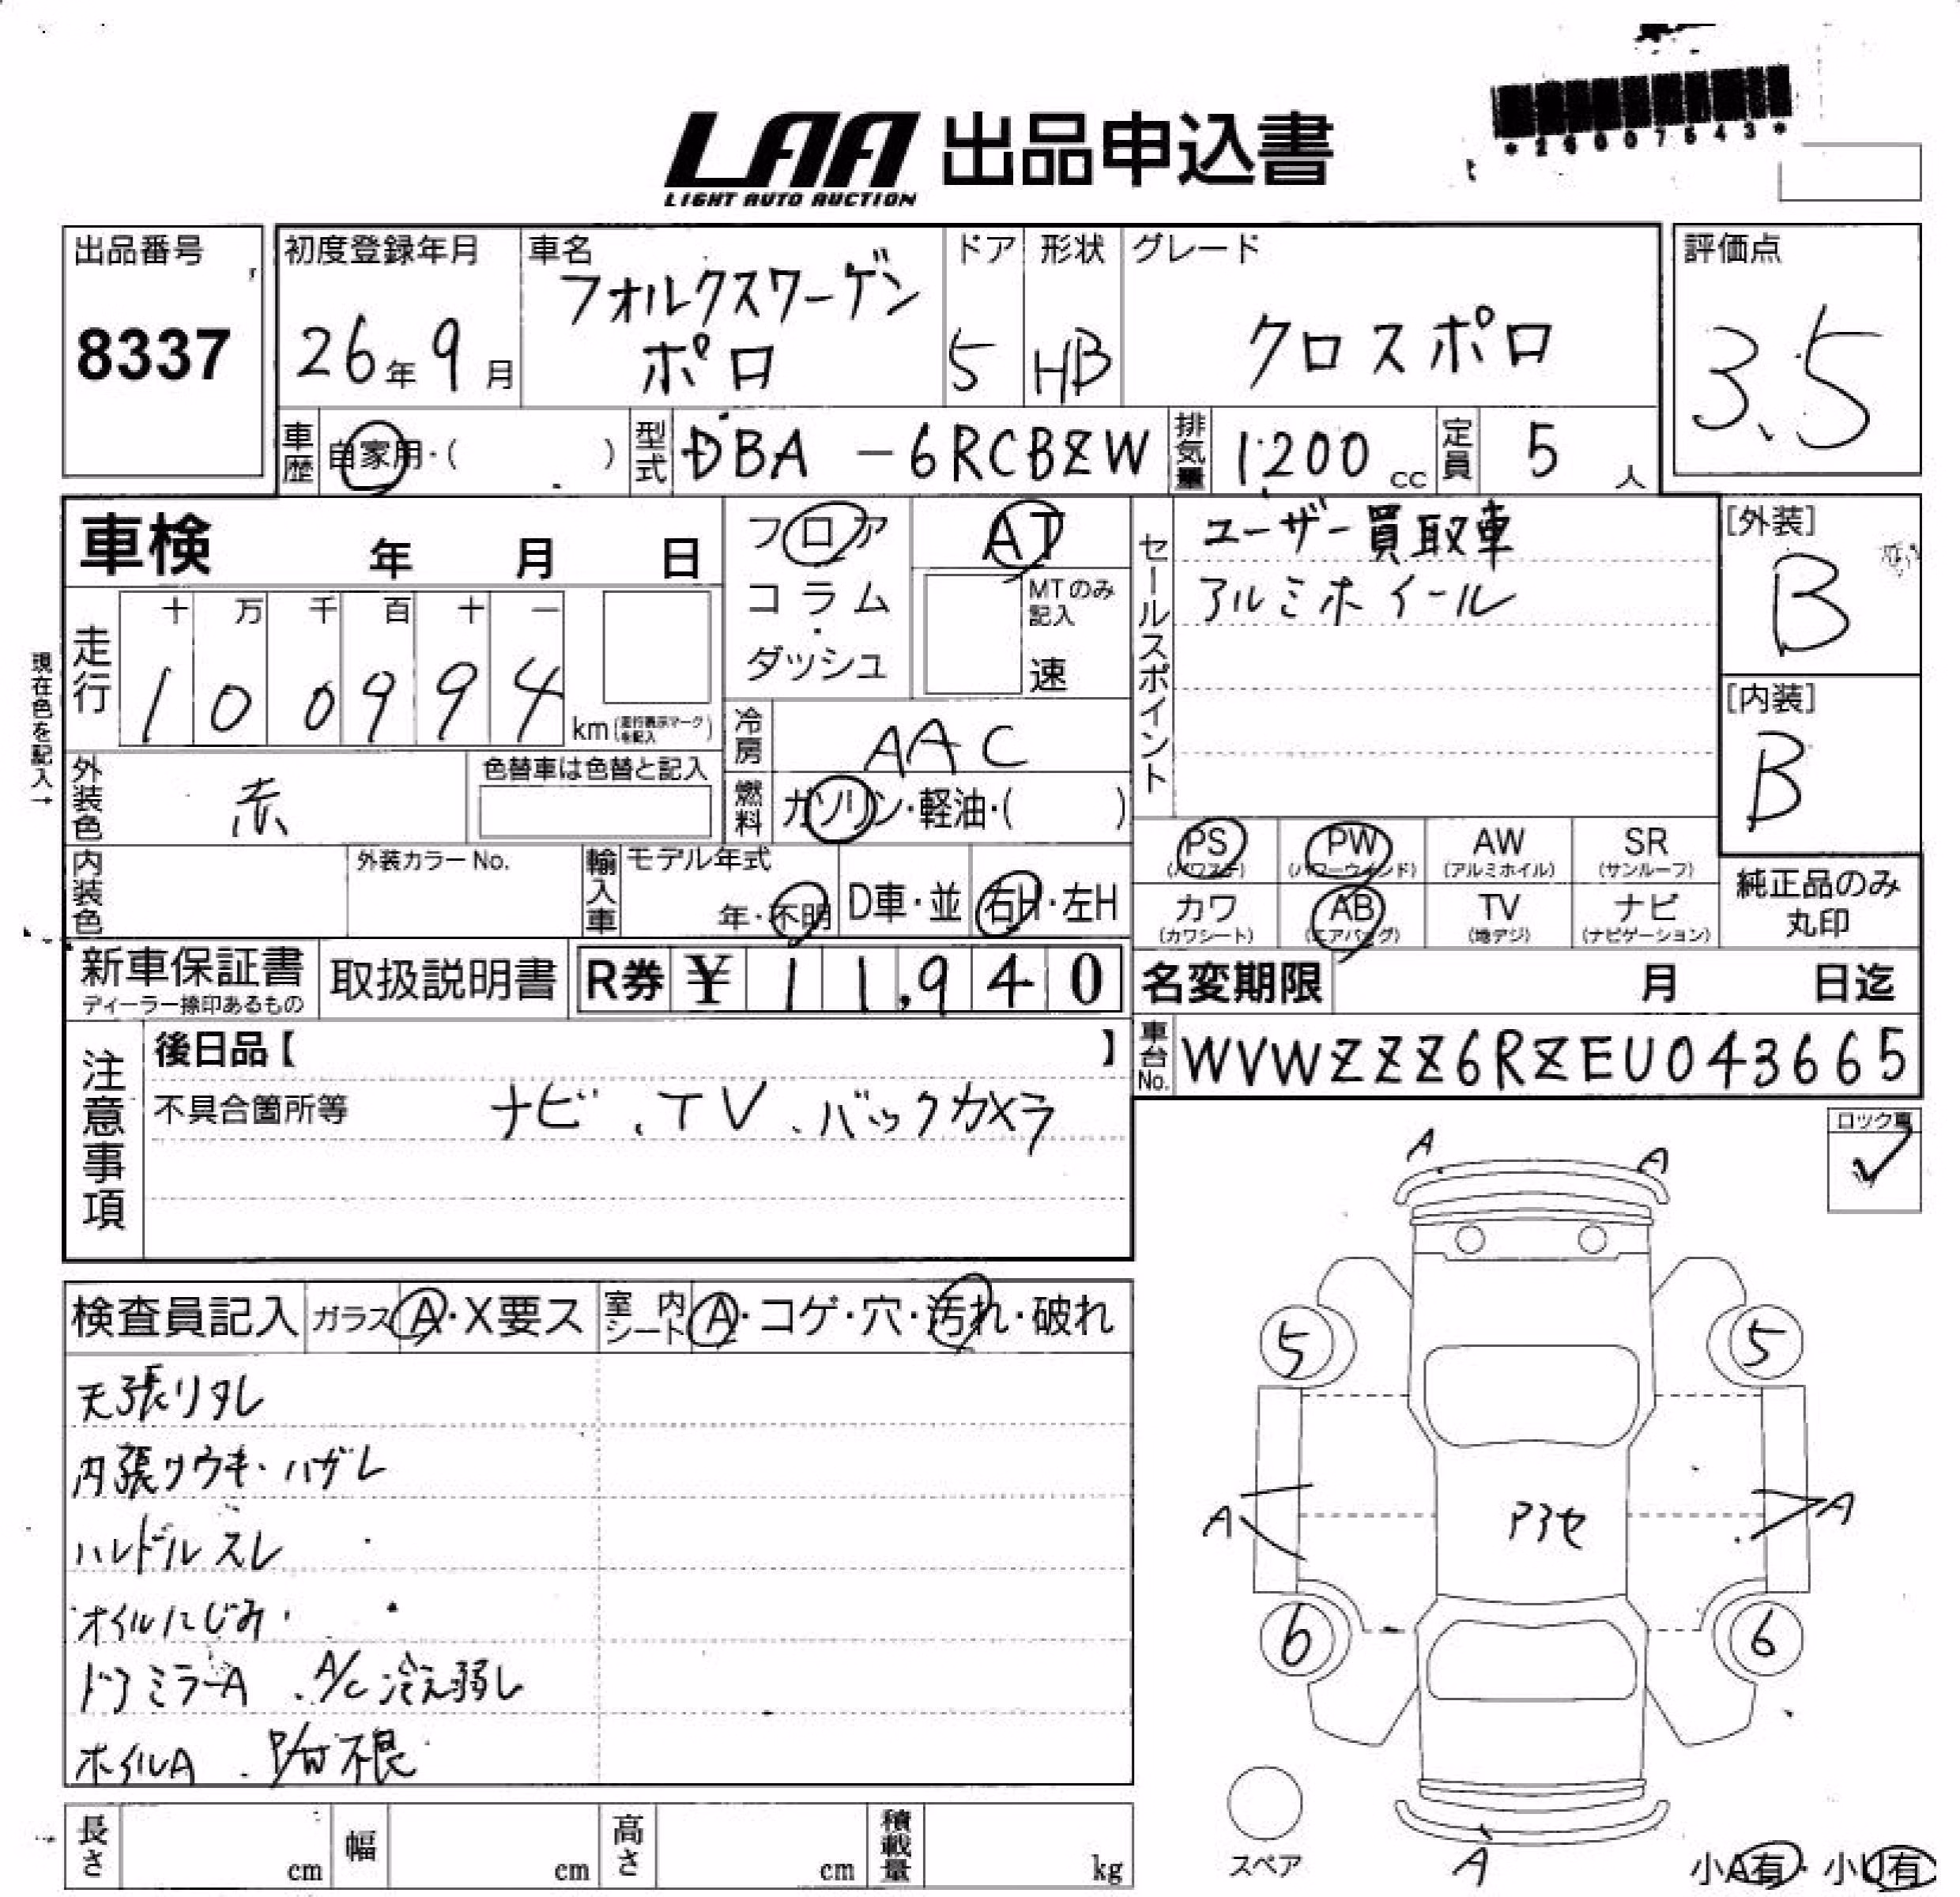 LAA 出品申込書
LIGHT AUTO AUCTION
*26007643*
出品番号
8337
初度登録年月
26年9月
車名
フォルクスワーゲン
ポロ
ドア
5
形状
HB
グレード
クロスポロ
評価点
3.5
車歴
自家用・( )
型式
DBA-6RCBZW
排気量
1200 cc
定員
5 人
車検 年 月 日
フロア
コラム
・
ダッシュ
AT
MTのみ
記入
速
セールスポイント
ユーザー買取車
アルミホイール
[外装]
B
[内装]
B
現在色を記入→
走行
十 万 千 百 十 一
1 0 0 9 9 4
km (走行表示マークを記入)
冷房
AAC
外装色
赤
色替車は色替と記入
燃料
ガソリン・軽油・( )
内装色
外装カラーNo.
輸入車
モデル年式
年・不明
D車・並
右H・左H
PS
(パワステ)
PW
(パワーウインド)
AW
(アルミホイル)
SR
(サンルーフ)
カワ
(カワシート)
AB
(エアバッグ)
TV
(地デジ)
ナビ
(ナビゲーション)
純正品のみ
丸印
新車保証書
ディーラー捺印あるもの
取扱説明書
R券 ¥ 11,940
名変期限 月 日迄
車台No.
WVWZZZ6RZEU043665
注意事項
後日品【 】
不具合箇所等 ナビ、TV、バックカメラ
ロック車
検査員記入
ガラス
A・X要ス
室内シート
A・コゲ・穴・汚れ・破れ
天張リタレ
内張リウキ・ハガレ
ハンドルスレ
オイルにじみ
ドアミラーA . A/C冷え弱し
ホイルA . P/W不良
A A
5 5
A アセ A
6 6
A
スペア
小A有・小U有
長さ cm
幅 cm
高さ cm
積載量 kg